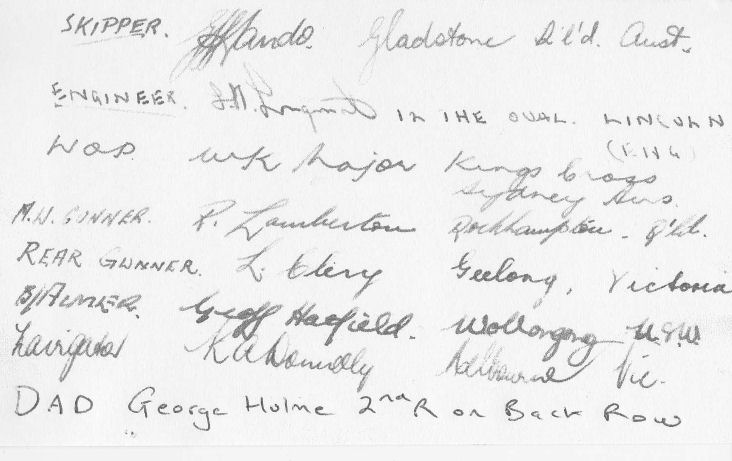 SKIPPER. Gladstone Q'l'd. Aust.
ENGINEER. IN THE OVAL. LINCOLN
(ENG)
WOP. WK Major Kings Cross
Sydney Aus.
M.U. GUNNER. R. Lamberton Rockhampton. Q'ld.
REAR GUNNER. L. Clery Geelong, Victoria
B/AIMER. Geoff Hatfield. Wollongong N.S.W.
Navigator K A Donnelly Melbourne Vic.
DAD George Hulme 2nd R on Back Row